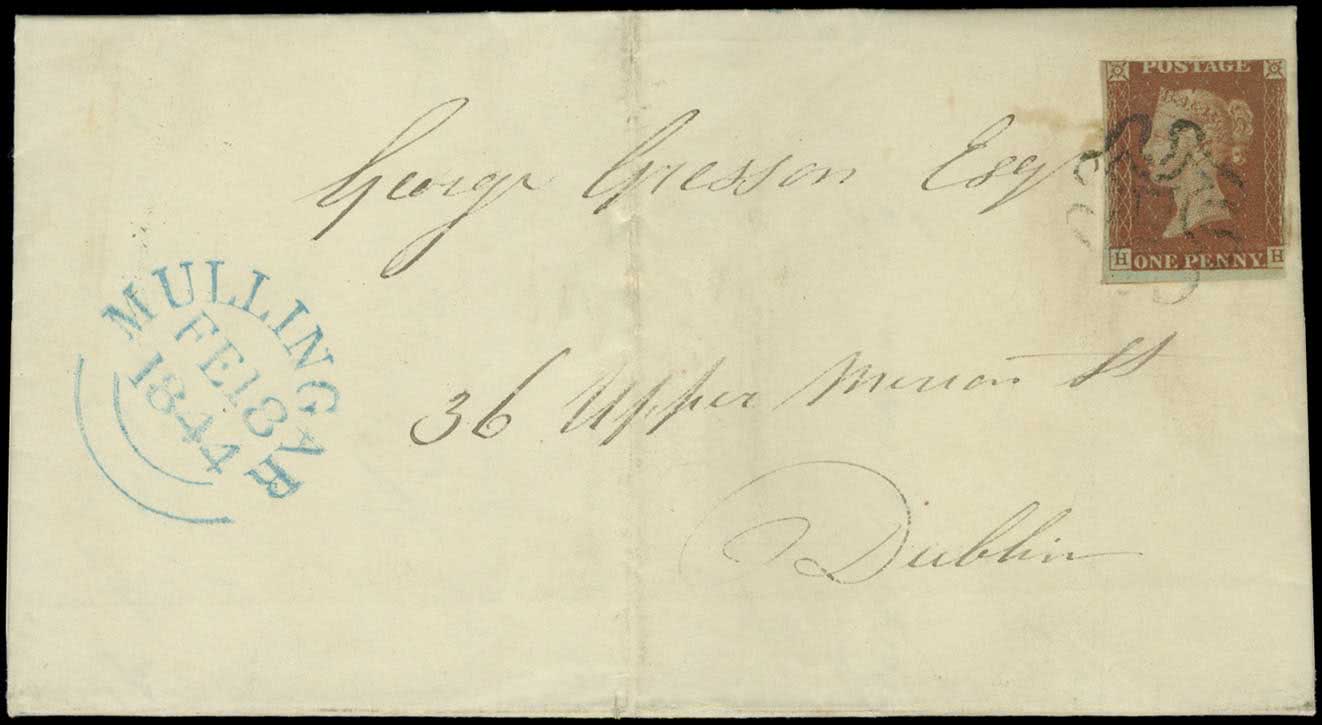 POSTAGE
George Gresson Esqr
H ONE PENNY H
MULLINGAR
FE 18
1844
36 Upper Merrion St
Dublin